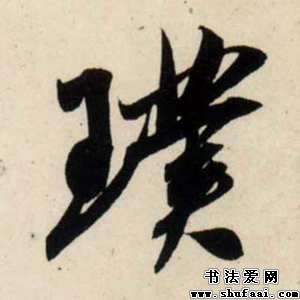 璞
书法爱网
www.shufaai.com